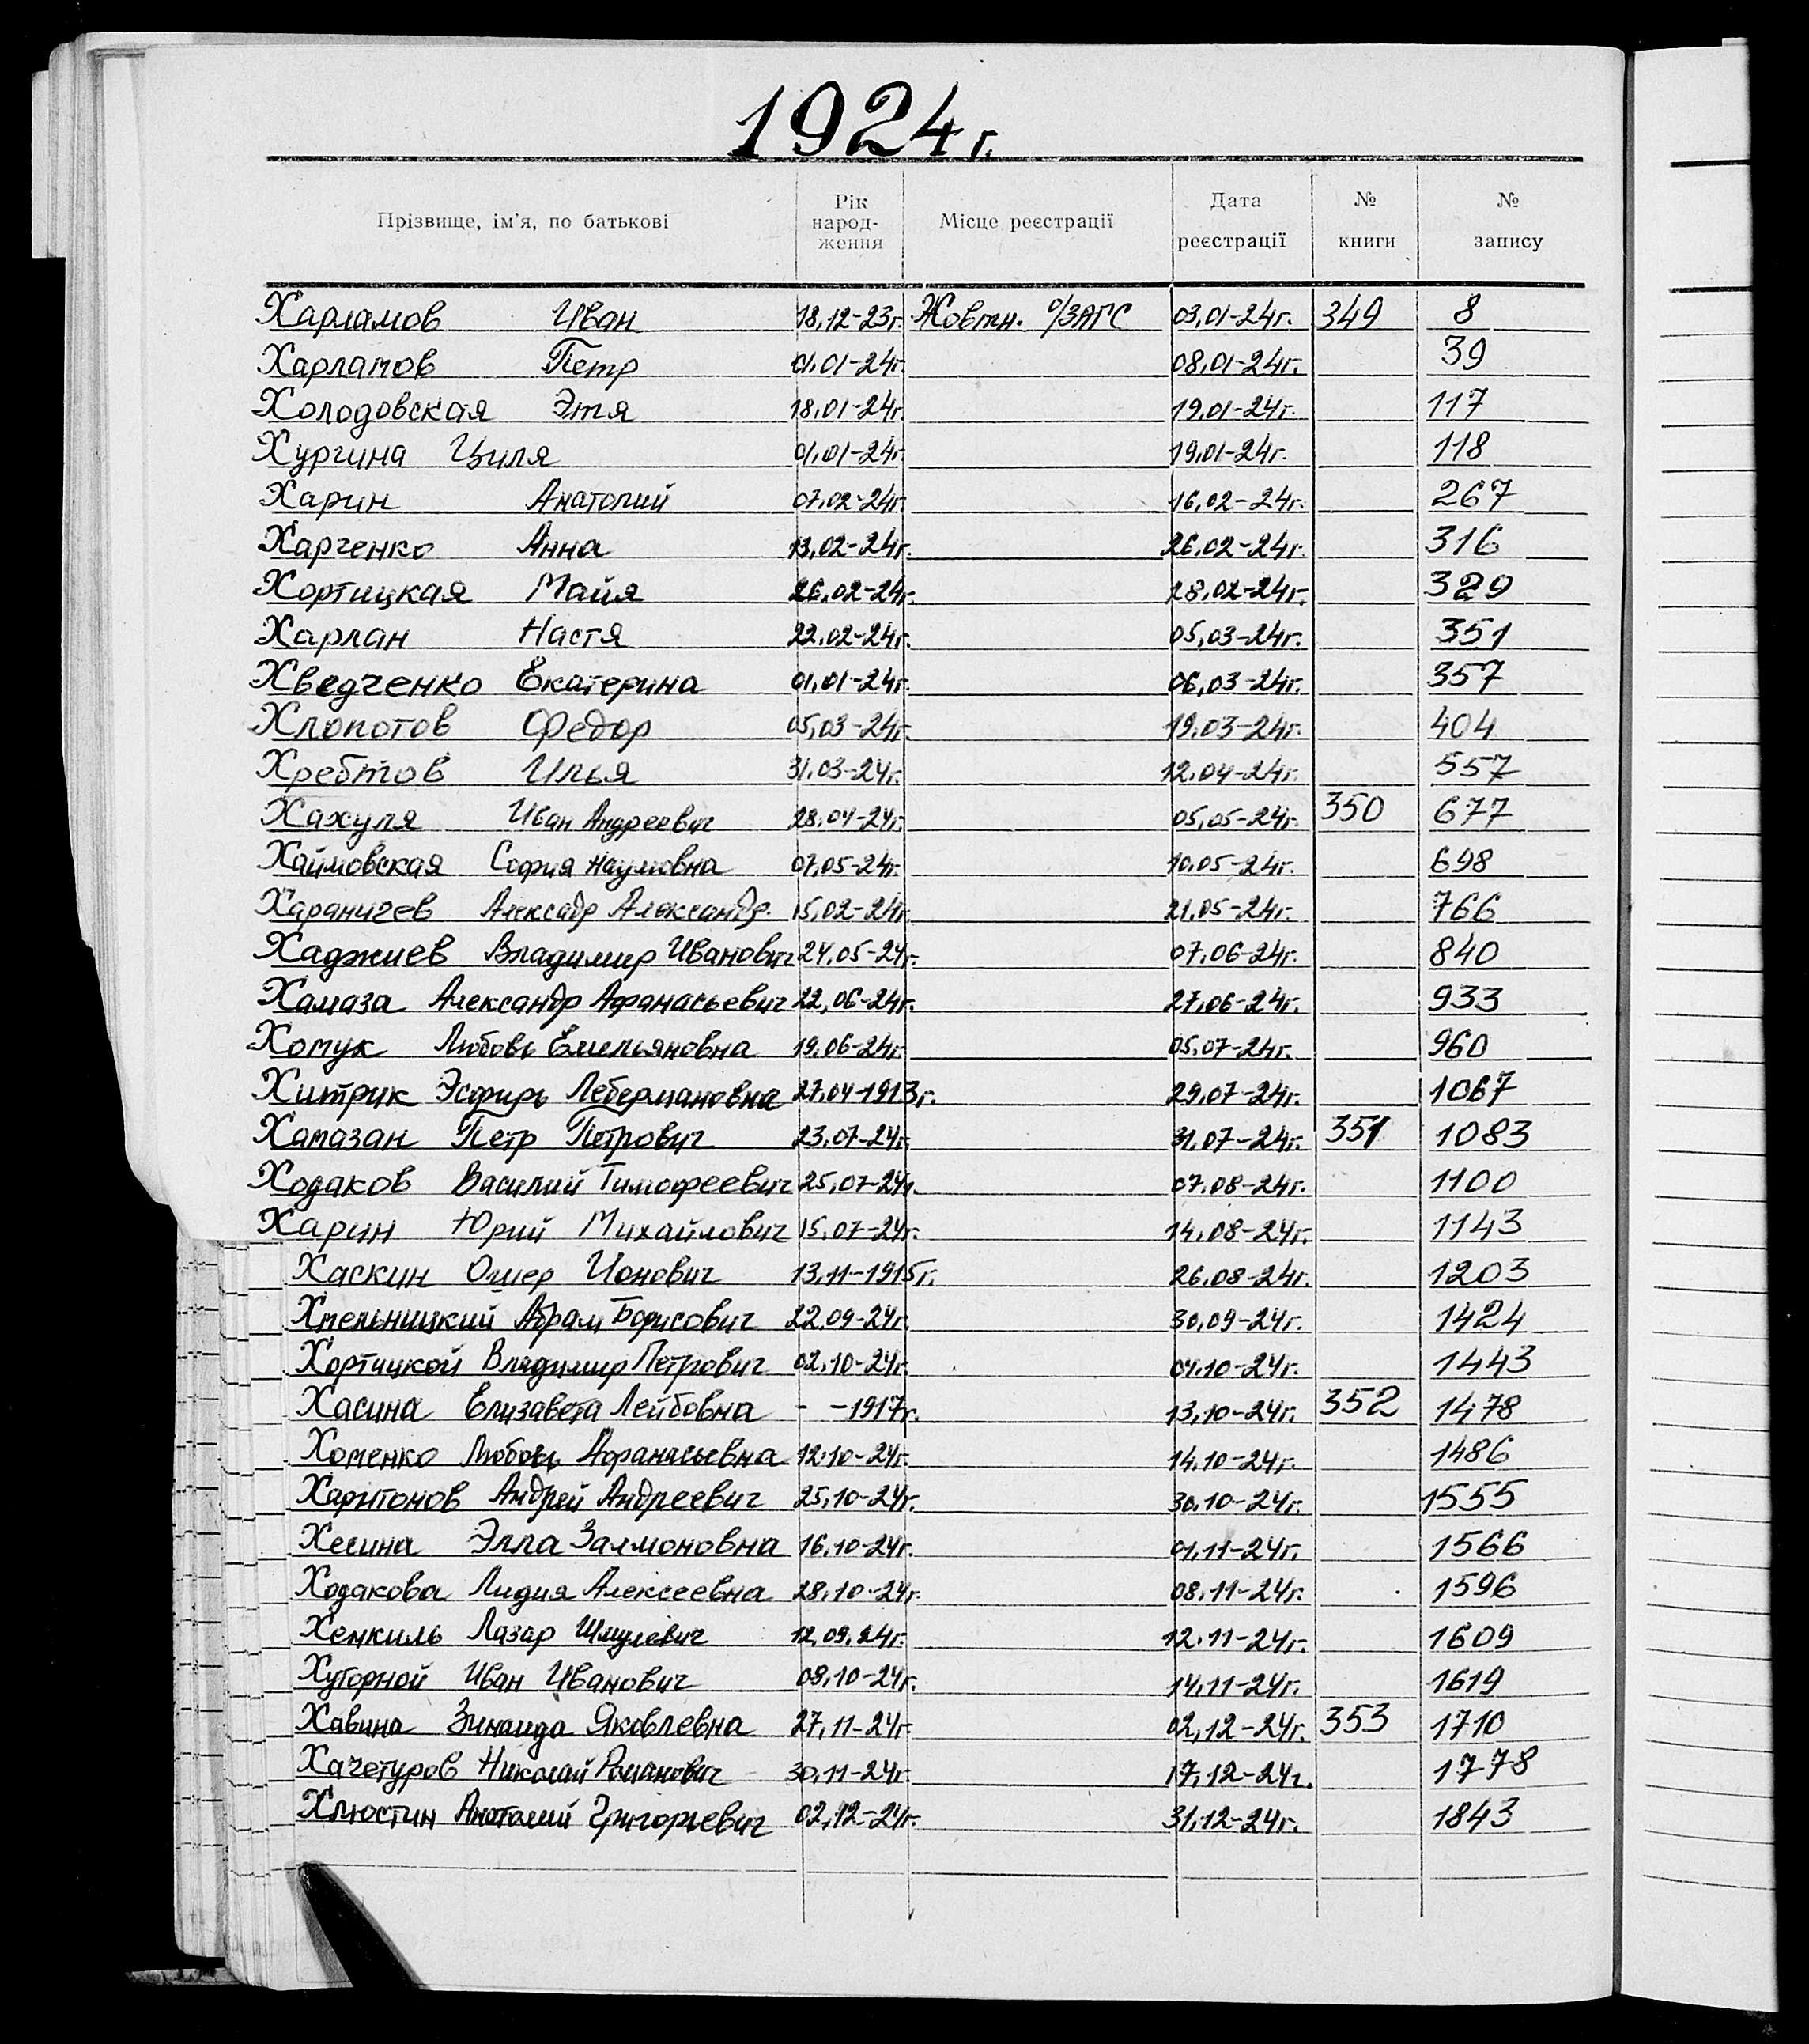 1924г.
Прізвище, ім'я, по батькові Рік народ-ження Місце реєстрації Дата реєстрації № книги № запису
Харламов Иван 18.12-23г. Жовтн. о/ЗАГС 03.01-24г. 349 8
Харламов Петр 01.01-24г. 08.01-24г. 39
Холодовская Этя 18.01-24г. 19.01-24г. 117
Хургина Циля 01.01-24г. 19.01-24г. 118
Харин Анатолий 07.02-24г. 16.02-24г. 267
Харченко Анна 13.02-24г. 26.02-24г. 316
Хортицкая Майя 26.02-24г. 28.02-24г. 329
Харлан Настя 22.02-24г. 05.03-24г. 351
Хведченко Екатерина 01.01-24г. 06.03-24г. 357
Хлопотов Федор 05.03-24г. 19.03-24г. 404
Хребтов Илья 31.03-24г. 12.04-24г. 557
Хахуля Иван Андреевич 28.04-24г. 05.05-24г. 350 677
Хаймовская София Наумовна 07.05-24г. 10.05-24г. 698
Хараничев Алексадр Александр. 15.02-24г. 21.05-24г. 766
Хаджиев Владимир Иванович 24.05-24г. 07.06-24г. 840
Хамаза Александр Афанасьевич 22.06-24г. 27.06-24г. 933
Хомук Любовь Емельяновна 19.06-24г. 05.07-24г. 960
Хитрик Эсфирь Лебермановна 27.04-1913г. 29.07-24г. 1067
Хамазан Петр Петрович 23.07-24г. 31.07-24г. 351 1083
Ходаков Василий Тимофеевич 25.07-24г. 07.08-24г. 1100
Харин Юрий Михайлович 15.07-24г. 14.08-24г. 1143
Хаскин Ошер Ионович 13.11-1915г. 26.08-24г. 1203
Хмельницкий Абрам Борисович 22.09-24г. 30.09-24г. 1424
Хортицкой Владимир Петрович 02.10-24г. 04.10-24г. 1443
Хасина Елизавета Лейбовна - -1917г. 13.10-24г. 352 1478
Хоменко Любовь Афанасьевна 12.10-24г. 14.10-24г. 1486
Харитонов Андрей Андреевич 25.10-24г. 30.10-24г. 1555
Хесина Элла Залмоновна 16.10-24г. 01.11-24г. 1566
Ходакова Лидия Алексеевна 28.10-24г. 08.11-24г. 1596
Хемкиль Лазар Шмулевич 12.09.24г. 12.11-24г. 1609
Хуторной Иван Иванович 08.10-24г. 14.11-24г. 1619
Хавина Зинаида Яковлевна 27.11-24г. 02.12-24г. 353 1710
Хачетуров Николай Романович 30.11-24г. 17.12-24г. 1778
Хлюстин Анатолий Григорьевич 02.12-24г. 31.12-24г. 1843